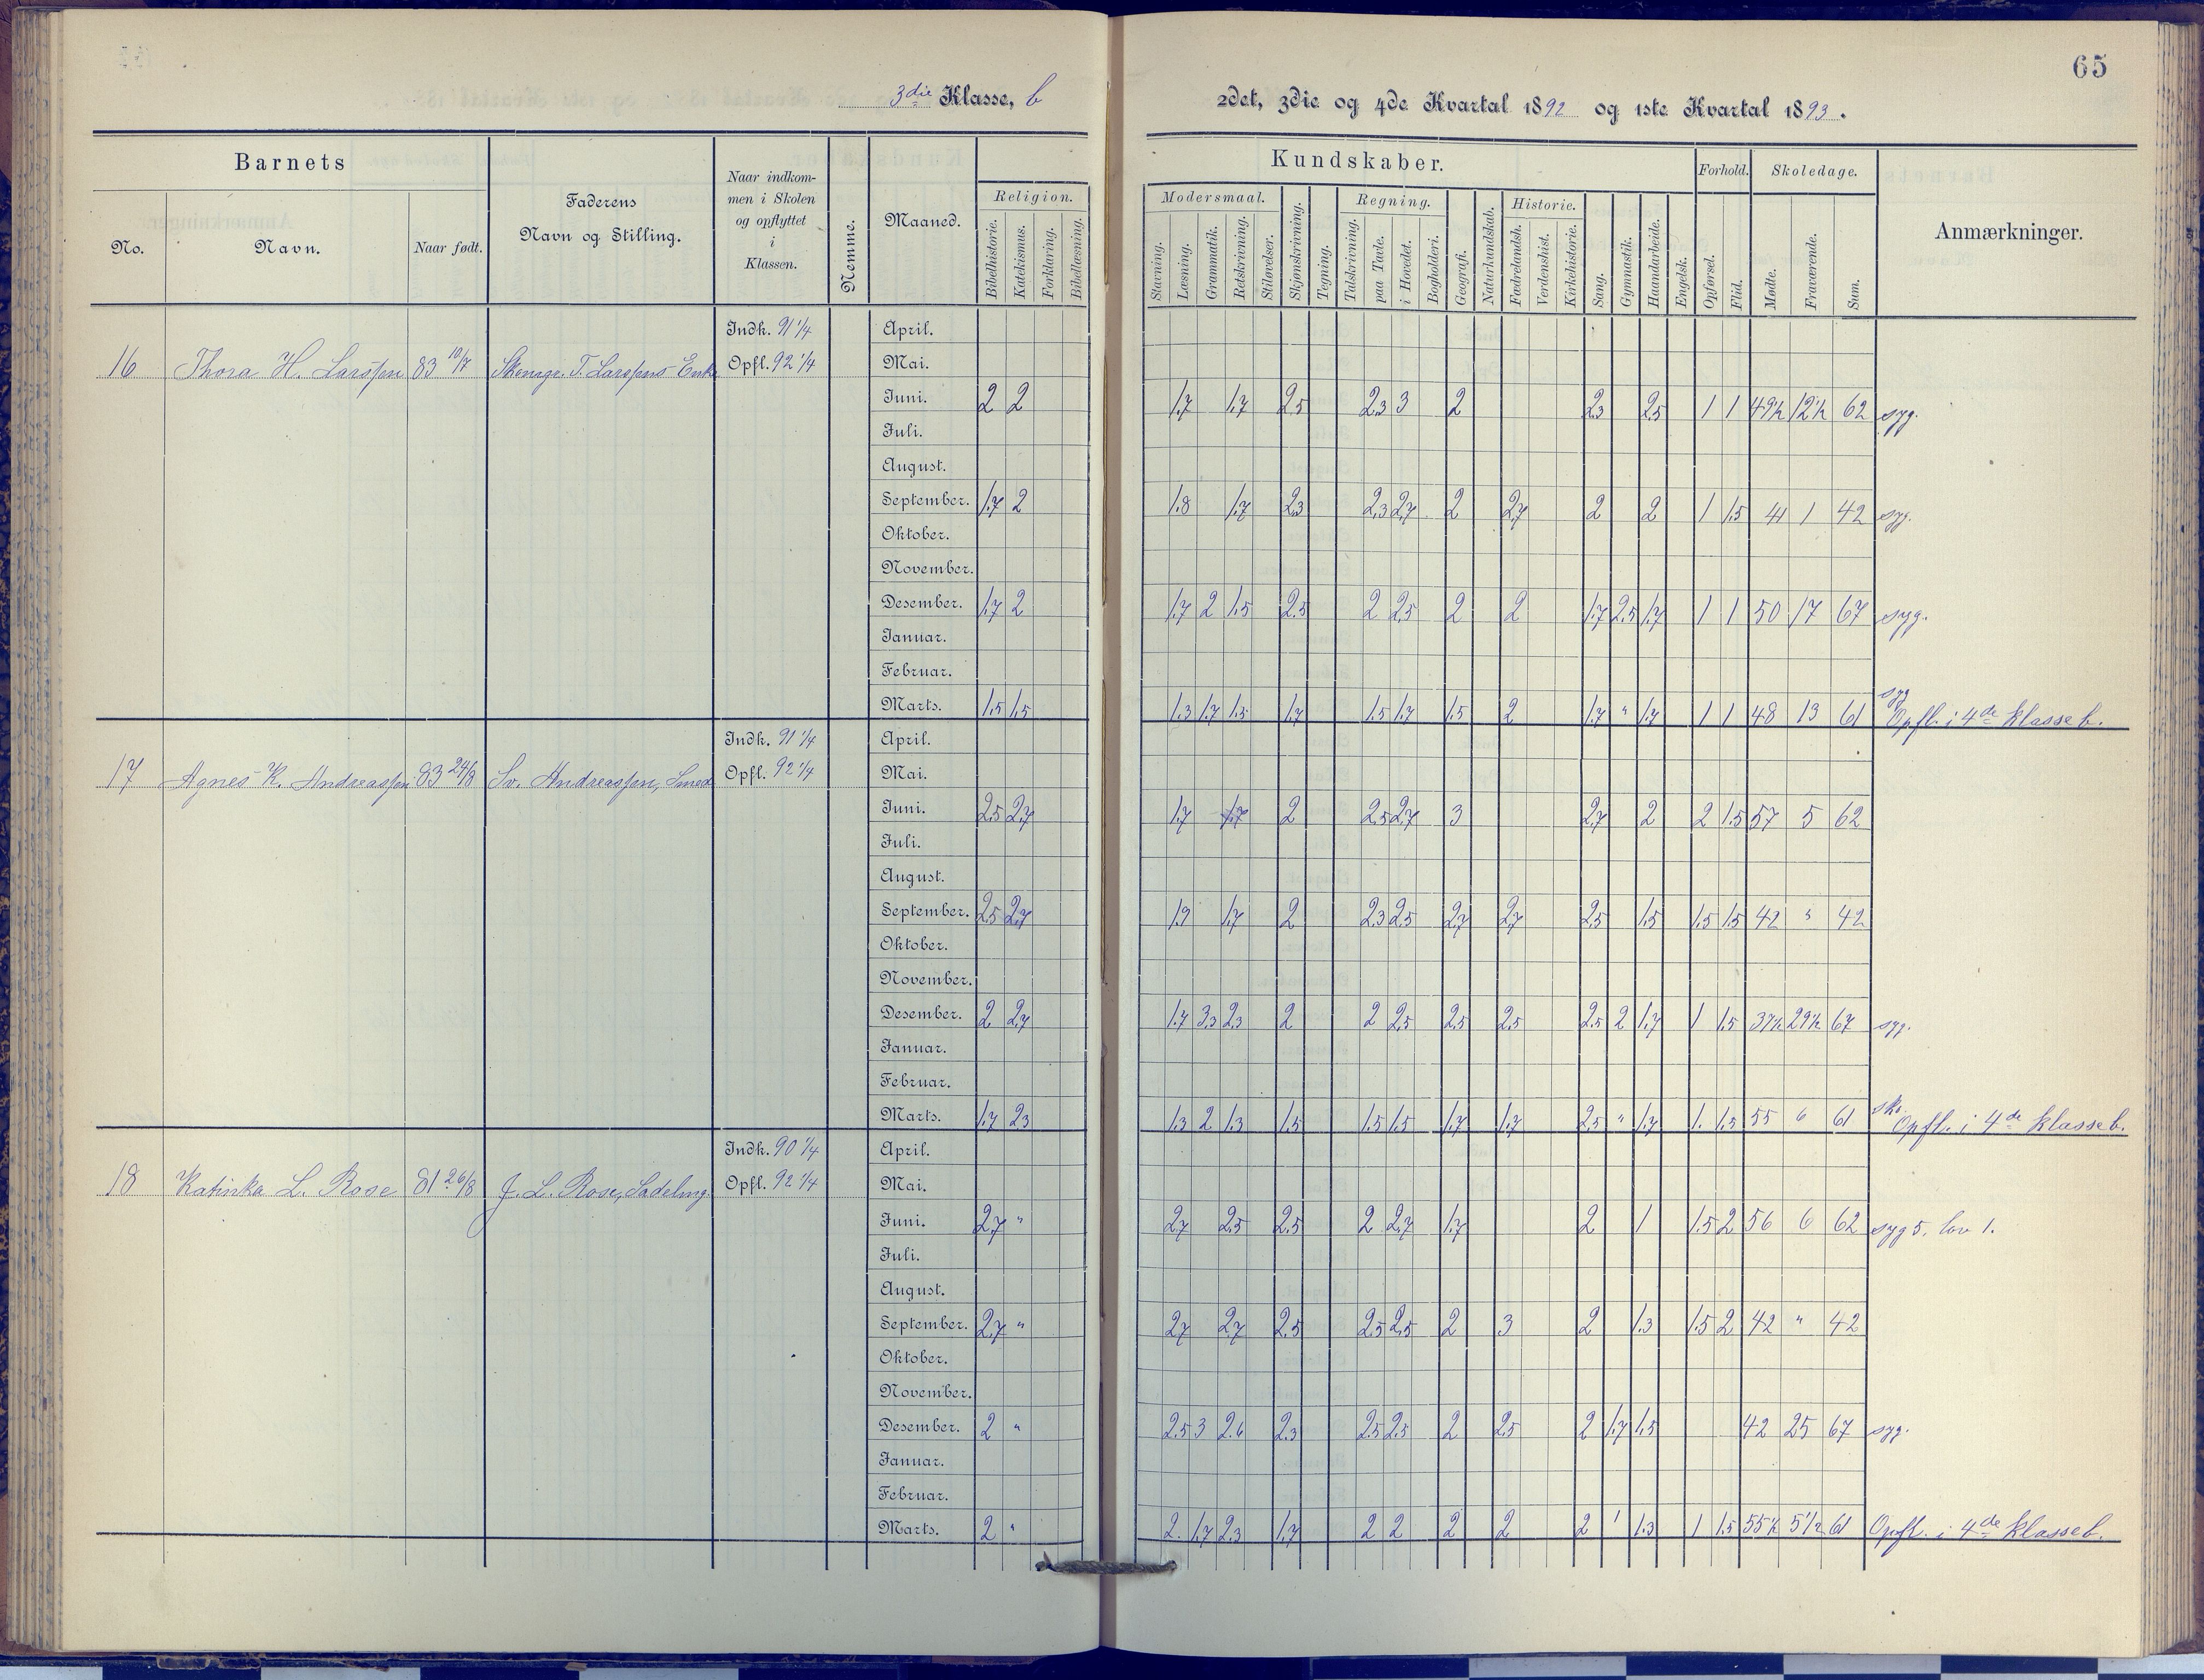 65
3die Klasse, b
2det, 3die og 4de Kvartal 1892 og 1ste Kvartal 1893.
Barnets
No.
Navn.
Naar født.
Faderens
Navn og Stilling.
Naar indkom-
men i Skolen
og opflyttet
i
Klassen.
Nemme.
Maaned.
Kundskaber.
Religion.
Bibelhistorie.
Katekismus.
Forklaring.
Bibellæsning.
Modersmaal.
Stavning.
Læsning.
Grammatik.
Retskrivning.
Stiløvelser.
Skjønskrivning.
Tegning.
Regning.
Talskrivning.
paa Tavle.
i Hovedet.
Bogholderi.
Geografi.
Naturkundskab.
Historie.
Fædrelandsh.
Verdenshist.
Kirkehistorie.
Sang.
Gymnastik.
Haandarbeide.
Engelsk.
Forhold.
Opførsel.
Flid.
Skoledage.
Mødte.
Fraværende.
Sum.
Anmærkninger.
Indk. 91 1/4 April.
16 Thora H. Larssen 83 10/7 T. Larssens Enke Opfl. 92 1/4 Mai.
Juni. 2 2 1.7 1.7 2.5 2.3 3 2 2.3 2.5 1 1 49½ 12½ 62 syg.
Juli.
August.
September. 1.7 2 1.8 1.7 2.3 2.3 2.7 2 2.7 2 2 1 1.5 41 1 42 syg.
Oktober.
November.
Desember. 1.7 2 1.7 2 1.5 2.5 2 2.5 2 2 1.7 2.5 1.7 1 1 50 17 67 syg.
Januar.
Februar.
Marts. 1.5 1.5 1.3 1.7 1.5 1.7 1.5 1.7 1.5 2 1.7 " 1.7 1 1 48 13 61 syg
Opfl. i 4de Klasse b.
Indk. 91 1/4 April.
17 Agnes K. Andreassen 83 24/8 Sv. Andreassen, Smed Opfl. 92 1/4 Mai.
Juni. 2.5 2.7 1.7 1.7 2 2.5 2.7 3 2.7 2 2 1.5 57 5 62
Juli.
August.
September. 2.5 2.7 1.9 1.7 2 2.3 2.5 2.7 2.7 2.5 1.5 1.5 1.5 42 " 42
Oktober.
November.
Desember. 2 2.7 1.7 3.3 2.3 2 2 2.5 2.5 2.5 2.5 2 1.7 1 1.5 37½ 29½ 67 syg.
Januar.
Februar.
Marts. 1.7 2.3 1.3 2 1.3 1.5 1.5 1.5 1.7 1.7 2.5 " 1.7 1. 1.5 55 6 61
Opfl. i 4de Klasse b.
Indk. 90 1/4 April.
18 Katinka L. Rose 81 26/8 J. L. Rose, Sadelmg. Opfl. 92 1/4 Mai.
Juni. 2.7 " 2.7 2.5 2.5 2 2.7 1.7 2 1 1.5 2 56 6 62 syg 5, lov 1.
Juli.
August.
September. 2.7 " 2.7 2.7 2.5 2.5 2.5 2 3 2 1.3 1.5 2 42 " 42
Oktober.
November.
Desember. 2 " 2.5 3 2.6 2.3 2.5 2.5 2 2.5 2 1.7 1.5 42 25 67 syg.
Januar.
Februar.
Marts. 2 " 2. 1.7 2.3 1.7 2 2 2 2 2 1 1.3 1 1.5 55½ 5½ 61 Opfl. i 4de Klasse b.